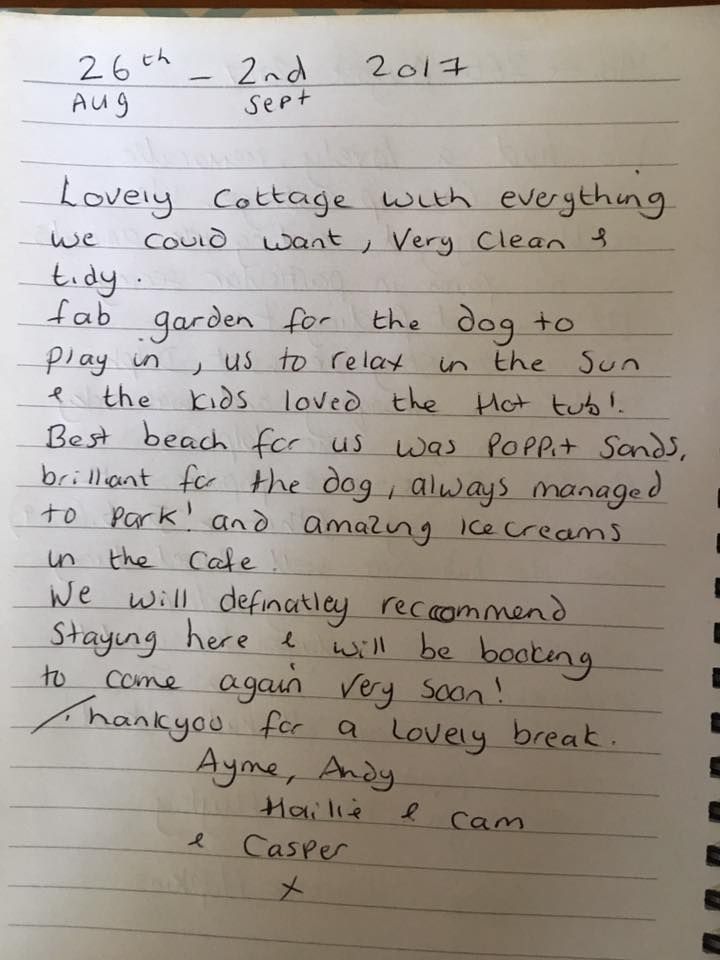 26th - 2nd 2017
Aug Sept
Lovely cottage with everything
we could want, Very Clean &
tidy.
fab garden for the dog to
play in, us to relax in the Sun
& the kids loved the Hot tub!.
Best beach for us was Poppit Sands,
brilliant for the dog, always managed
to Park! and amazing Ice creams
in the Cafe!
We will definatley reccommend
Staying here & will be booking
to come again very soon!
Thankyou for a Lovely break.
Ayme, Andy
Hailie & Cam
& Casper
x